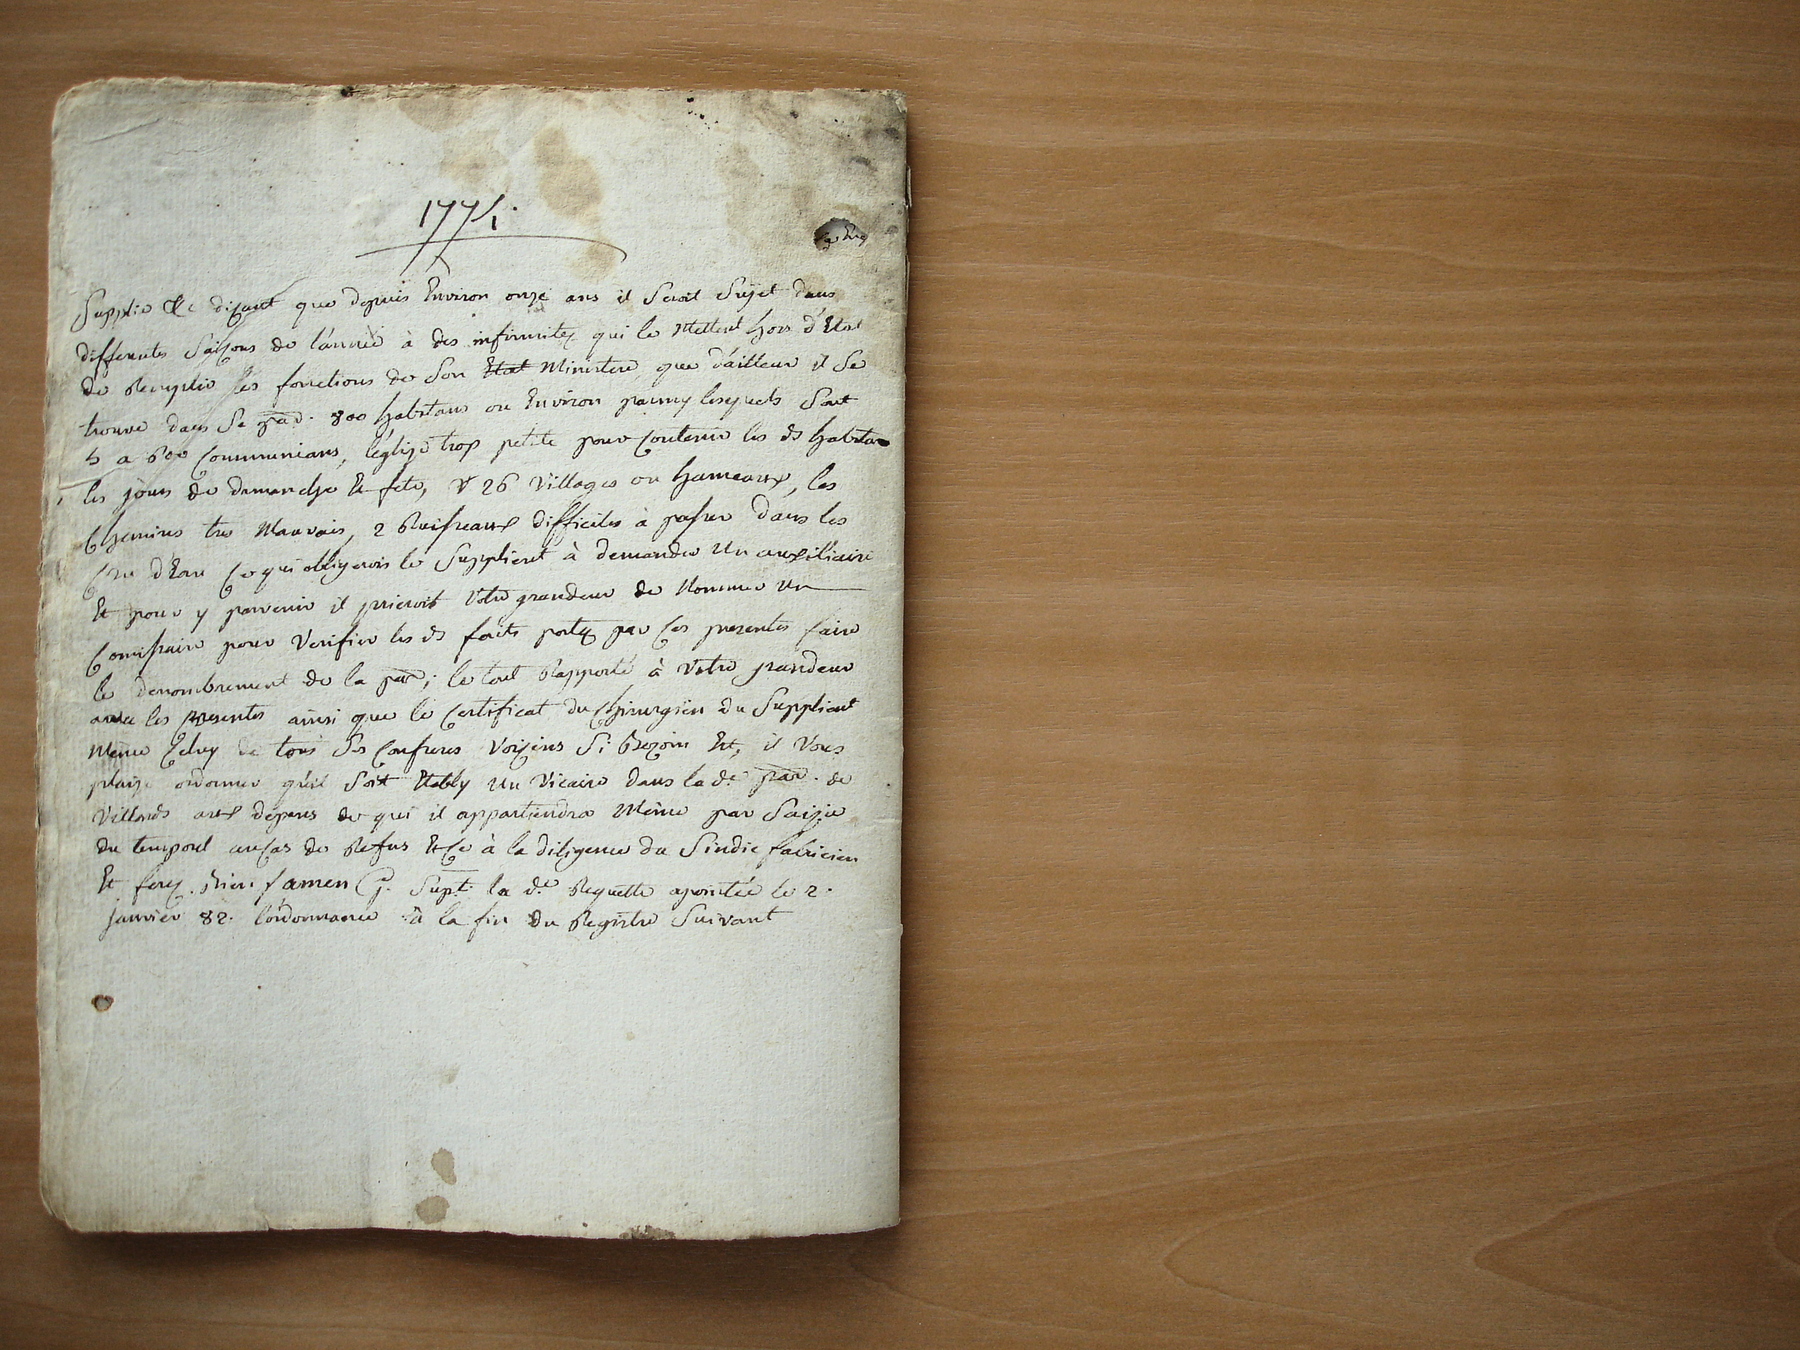 1774.
Supplie &c disant que depuis Environ onze ans il seroit Sujet dans
differentes Saisons de l'année à des infirmitez qui le Mettent hors d'Etat
de Remplir ses fonctions de Son Etat Ministere que d'ailleur il Se
trouve dans Sa par. 800 habitans ou Environ parmy lesquels Sont
5 a 600 Communians, l'églize trop petite pour Contenir les ds habitans
les jours de dimanche Et fete, 26 Villages ou hameaux, les
Chemins tres Mauvais, 2 Ruisseaux difficiles à passer dans les
Cru d'Eau Ce qui obligerois le Suppliant à demander Un auxiliaire
Et pour y parvenir il prieroit Votre grandeur de Nommer Un
Comissaire pour Verifier les ds faits portez par Ces presentes faire
le denombrement de la par; le tout Rapporté à Votre grandeur
avec les presentes ainsi que le Certificat du Chirurgien du Suppliant
Même Celuy de tous Ses Confreres Voizins Si Bezoin Est, il Vous
plaise ordonner qu'il Soit Etably Un Vicaire dans la de par. de
Villards aux dépens de qui il appartiendra Même par Saizie
du temporel au Cas de Refus Et Ce à la diligence du Sindic fabricien
Et ferez bien. famen G. Supt. la de Requette apointée le 2.
janvier 82. l'ordonnance à la fin du Registre Suivant